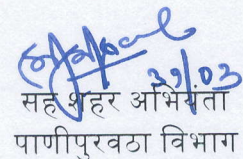 ३१/०३
सह शहर अभियंता
पाणीपुरवठा विभाग